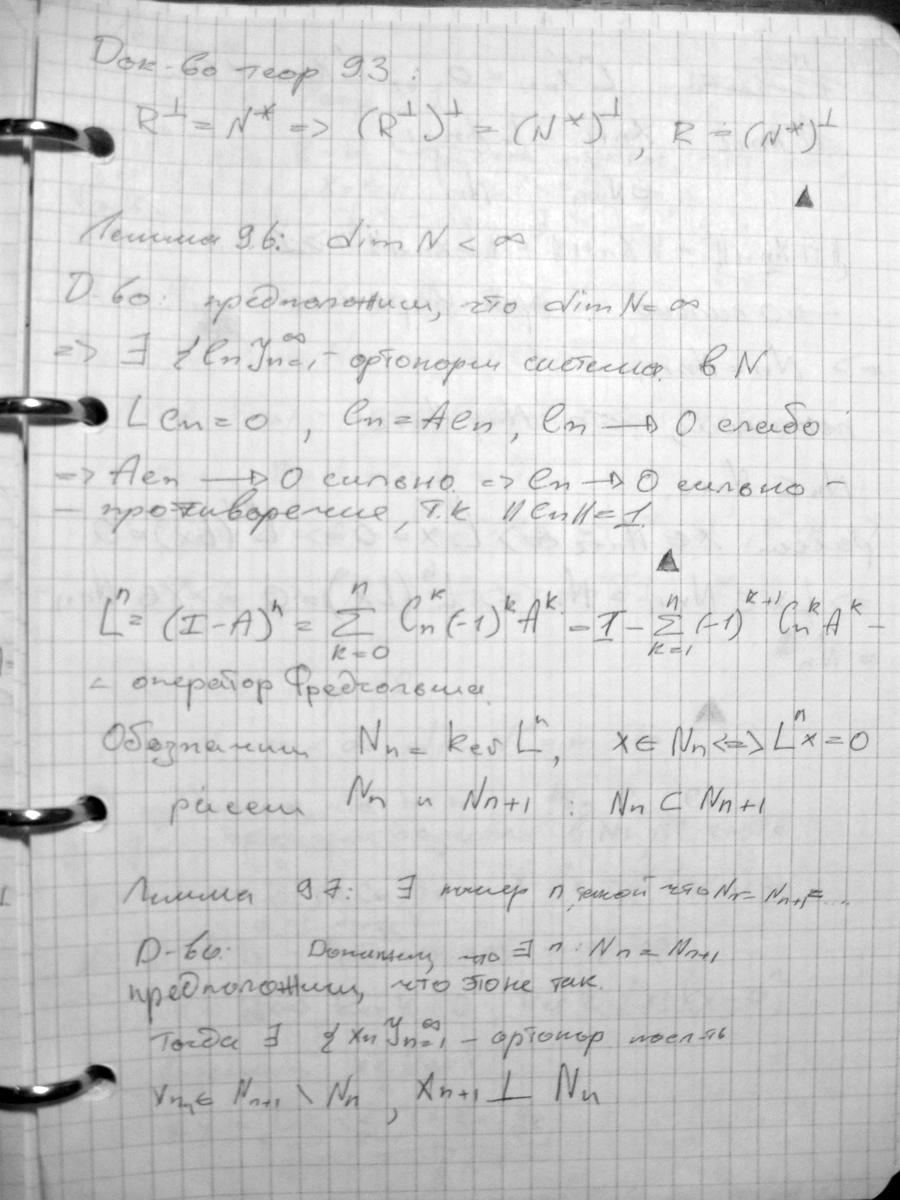 Док-во теор 9.3 :
R^⊥ = N* => (R^⊥)^⊥ = (N*)^⊥, R = (N*)^⊥
▲
Лемма 9.6: dim N < ∞
D-во: предположим, что dim N = ∞
=> ∃ {e_n}_{n=1}^∞ - ортонорм система в N
L e_n = 0 , e_n = A e_n , e_n → 0 слабо
=> A e_n → 0 сильно => e_n → 0 сильно -
- противоречие, т.к ||e_n|| = 1.
▲
L^n = (I - A)^n = Σ_{k=0}^n C_n^k (-1)^k A^k = I - Σ_{k=1}^n (-1)^{k+1} C_n^k A^k -
- оператор Фредгольма.
Обозначим N_n = ker L^n, x ∈ N_n <=> L^n x = 0
рассм N_n и N_{n+1} : N_n ⊂ N_{n+1}
Лемма 9.7: ∃ номер n, такой что N_n = N_{n+1} = ...
D-во: Докажем, что ∃ n : N_n = N_{n+1}
предположим, что это не так.
Тогда ∃ {x_n}_{n=1}^∞ - ортонор посл-ть
∈ N_{n+1} \ N_n , x_{n+1} ⊥ N_n